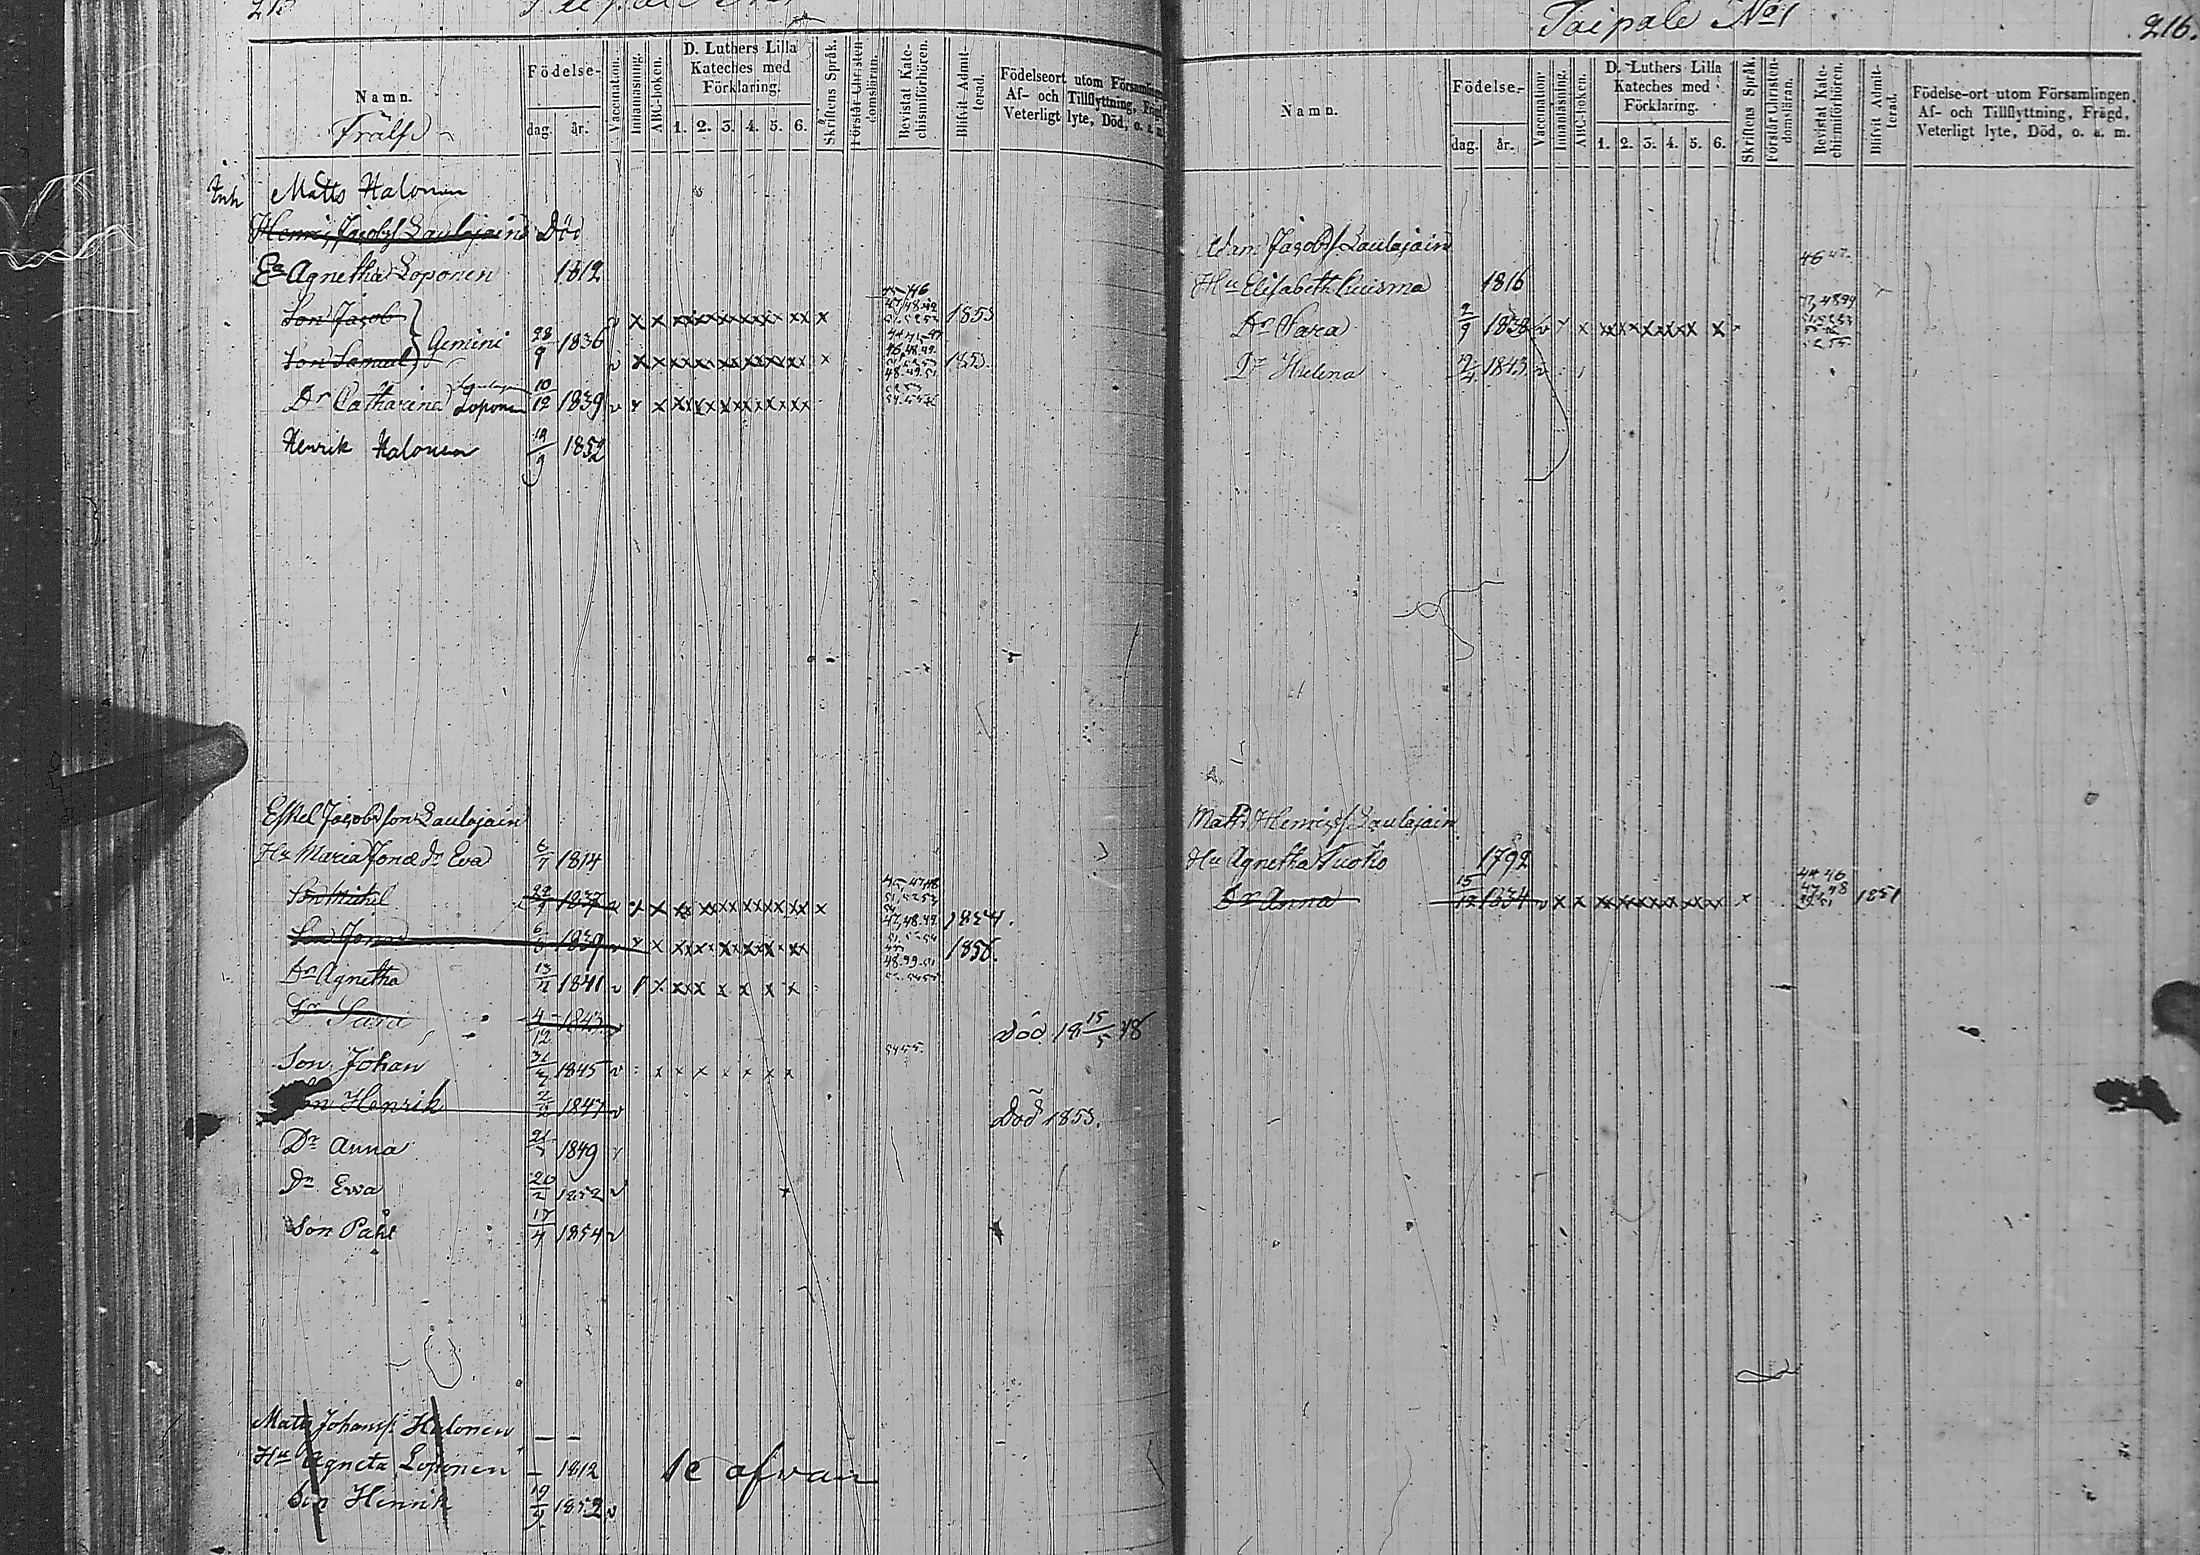 Taipale No 1
216.
Namn.
Frälse
Födelse-
dag. år.
Vaccination.
Innanläsning.
ABC-boken.
D. Luthers Lilla
Kateches med
Förklaring.
1. 2. 3. 4. 5. 6.
Skriftens Språk.
Förstår Christen-
domsläran.
Bevistat Kate-
chismiförhören.
Blifvit Admit-
terad.
Födelseort utom Församlingen
Af- och Tillflyttning, Frägd,
Veterligt lyte, Död, o. a. m.
Inh Matts Halonen
Henric Jacobs Laulajain Död
Ea Agnetha Loponen 1812
Son Jacob 1853
Gemini 28/9 1836
Son Samuel 1853
Dr Catharina Loponen 10/12 1839
Henrik Halonen 19/9 1852
Eskel Jacobsson Laulajain
Hu Maria Jonæ dr Eva 1814
Son Mikel 1837 1854.
Son Jonas 1839 1856.
Dr Agnetha 1841
Dr Sara 4/12 1843 Död 18 15/5 48
Son Johan 1845
Son Henrik 1847 Död 1853.
Dr Anna 1849
Dr Ewa 1852
Son Påhl 17/4 1854
Matts Johanss. Halonen — —
Hu Agneta Loponen — 1812 se ofvan
Son Henrik 19/9 1852
Namn.
Födelse-
dag. år.
Vaccination.
Innanläsning.
ABC-boken.
D. Luthers Lilla
Kateches med
Förklaring.
1. 2. 3. 4. 5. 6.
Skriftens Språk.
Förstår Christen-
domsläran.
Bevistat Kate-
chismiförhören.
Blifvit Admit-
terad.
Födelse-ort utom Församlingen,
Af- och Tillflyttning, Frägd,
Veterligt lyte, Död, o. a. m.
Adam Jacobs Laulajain
Hu Elisabeth Kuisma 1816
Dr Sara 1838
Dr Helena 1843
Matts Henrics Laulajain
Hu Agnetha Tuoho 1792
Dr Anna 15/12 1834 1851